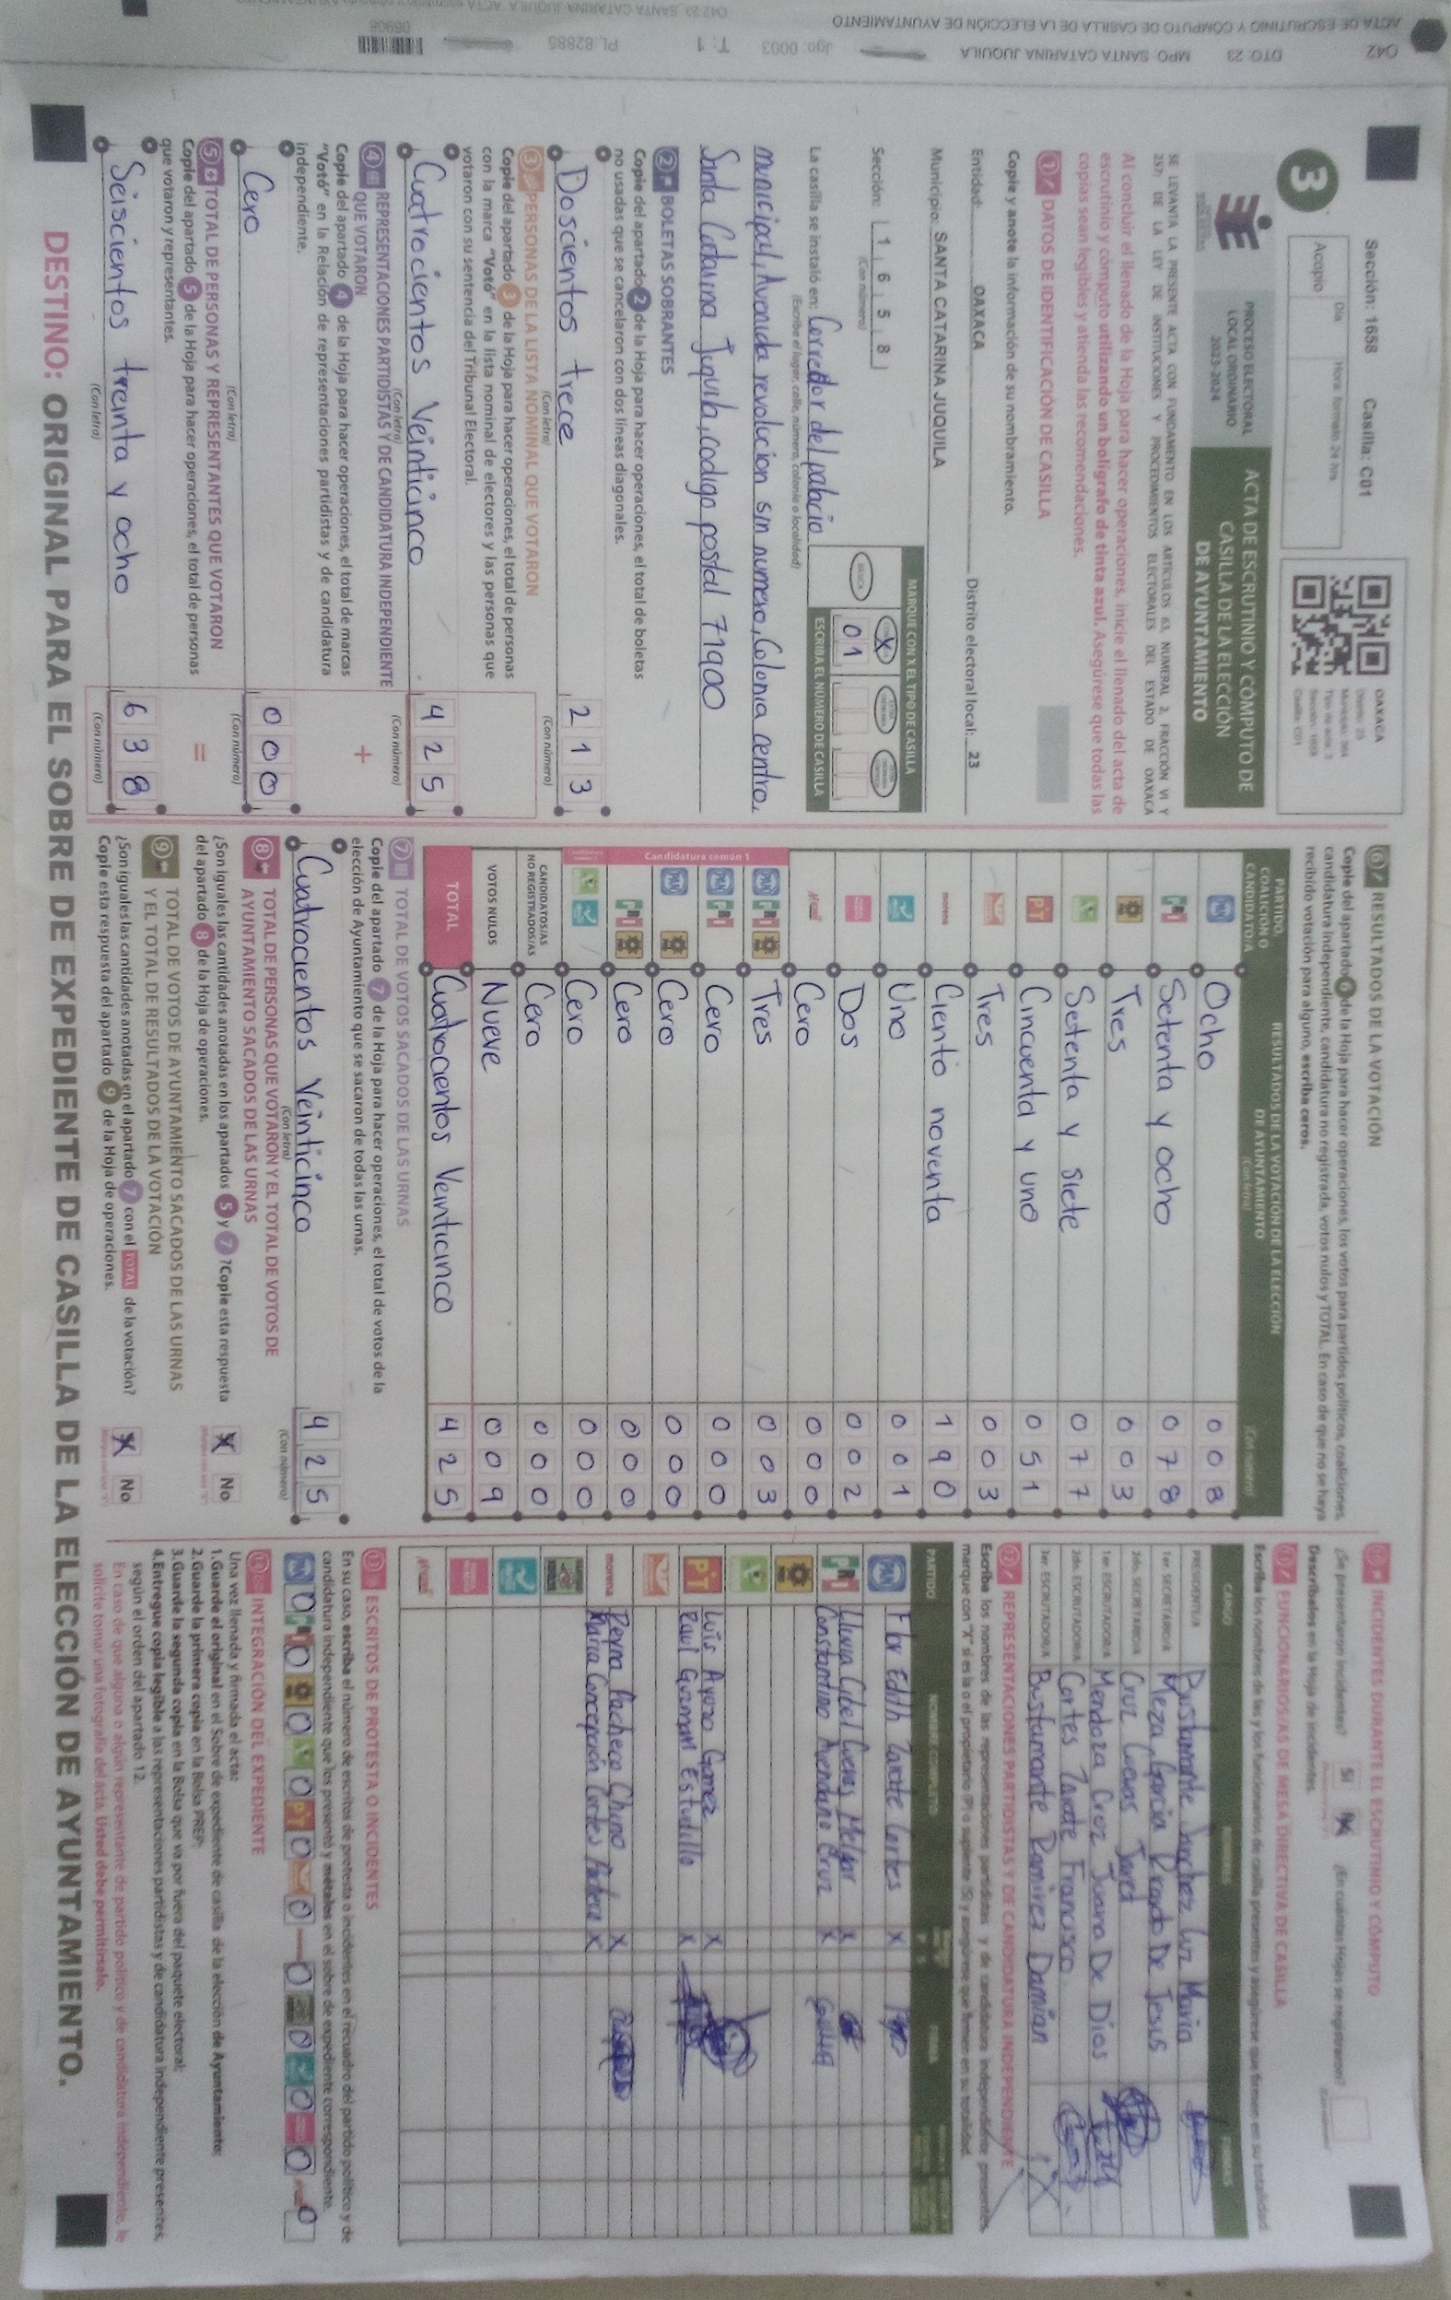 Sección: 1658 Casilla: C01
Día Hora formato 24 hrs
Acopio
3
OAXACA
PROCESO ELECTORAL LOCAL ORDINARIO 2023-2024
ACTA DE ESCRUTINIO Y CÓMPUTO DE
CASILLA DE LA ELECCIÓN
DE AYUNTAMIENTO
SE LEVANTA LA PRESENTE ACTA CON FUNDAMENTO EN LOS ARTÍCULOS 63, NUMERAL 2, FRACCIÓN VI Y
237; DE LA LEY DE INSTITUCIONES Y PROCEDIMIENTOS ELECTORALES DEL ESTADO DE OAXACA
Al concluir el llenado de la Hoja para hacer operaciones, inicie el llenado del acta de
escrutinio y cómputo utilizando un bolígrafo de tinta azul. Asegúrese que todas las
copias sean legibles y atienda las recomendaciones.
1 DATOS DE IDENTIFICACIÓN DE CASILLA
Copie y anote la información de su nombramiento.
Entidad: OAXACA Distrito electoral local: 23
Municipio: SANTA CATARINA JUQUILA
MARQUE CON X EL TIPO DE CASILLA
Sección: 1 6 5 8
(Con número)
BÁSICA X
01
ESCRIBA EL NÚMERO DE CASILLA
La casilla se instaló en: Corredor del palacio
(Escriba el lugar, calle, número, colonia o localidad)
municipal, Avenida revolucion sin numero, Colonia centro.
Santa Catarina Juquila, codigo postal 71900
2 BOLETAS SOBRANTES
Copie del apartado 2 de la Hoja para hacer operaciones, el total de boletas
no usadas que se cancelaron con dos líneas diagonales.
Doscientos trece 2 1 3
(Con letra) (Con número)
3 PERSONAS DE LA LISTA NOMINAL QUE VOTARON
Copie del apartado 3 de la Hoja para hacer operaciones, el total de personas
con la marca "Votó" en la lista nominal de electores y las personas que
votaron con su sentencia del Tribunal Electoral.
Cuatrocientos Veinticinco 4 2 5
(Con letra) (Con número)
4 REPRESENTACIONES PARTIDISTAS Y DE CANDIDATURA INDEPENDIENTE
QUE VOTARON
+
Copie del apartado 4 de la Hoja para hacer operaciones, el total de marcas
"Votó" en la Relación de representaciones partidistas y de candidatura
independiente.
Cero 0 0 0
(Con letra) (Con número)
5 TOTAL DE PERSONAS Y REPRESENTANTES QUE VOTARON
=
Copie del apartado 5 de la Hoja para hacer operaciones, el total de personas
que votaron y representantes.
Seiscientos treinta y ocho 6 3 8
(Con letra) (Con número)
6 RESULTADOS DE LA VOTACIÓN
Copie del apartado 6 de la Hoja para hacer operaciones, los votos para partidos políticos, coaliciones,
candidatura independiente, candidatura no registrada, votos nulos y TOTAL. En caso de que no se haya
recibido votación para alguno, escriba ceros.
PARTIDO, COALICIÓN O CANDIDATO/A
RESULTADOS DE LA VOTACIÓN DE LA ELECCIÓN DE AYUNTAMIENTO
(Con letra) (Con número)
PAN Ocho 0 0 8
PRI Setenta y ocho 0 7 8
Tres 0 0 3
Setenta y siete 0 7 7
PT Cincuenta y uno 0 5 1
Tres 0 0 3
morena Ciento noventa 1 9 0
Uno 0 0 1
Dos 0 0 2
Cero 0 0 0
Candidatura común 1
PAN PRI Tres 0 0 3
PAN PRI Cero 0 0 0
PAN Cero 0 0 0
PRI Cero 0 0 0
Cero 0 0 0
CANDIDATOS/AS NO REGISTRADOS/AS Cero 0 0 0
VOTOS NULOS Nueve 0 0 9
TOTAL Cuatrocientos Veinticinco 4 2 5
7 TOTAL DE VOTOS SACADOS DE LAS URNAS
Copie del apartado 7 de la Hoja para hacer operaciones, el total de votos de la
elección de Ayuntamiento que se sacaron de todas las urnas.
Cuatrocientos Veinticinco 4 2 5
(Con letra) (Con número)
8 TOTAL DE PERSONAS QUE VOTARON Y EL TOTAL DE VOTOS DE
AYUNTAMIENTO SACADOS DE LAS URNAS
¿Son iguales las cantidades anotadas en los apartados 5 y 7 ? Copie esta respuesta
del apartado 8 de la Hoja de operaciones.
X No
9 TOTAL DE VOTOS DE AYUNTAMIENTO SACADOS DE LAS URNAS
Y EL TOTAL DE RESULTADOS DE LA VOTACIÓN
¿Son iguales las cantidades anotadas en el apartado 7 con el TOTAL de la votación?
Copie esta respuesta del apartado 9 de la Hoja de operaciones.
X No
10 INCIDENTES DURANTE EL ESCRUTINIO Y CÓMPUTO
¿Se presentaron incidentes? Sí ¿En cuántas Hojas se registraron?
Descríbalos en la Hoja de incidentes.
11 FUNCIONARIOS/AS DE MESA DIRECTIVA DE CASILLA
Escriba los nombres de las y los funcionarios de casilla presentes y asegúrese que firmen en su totalidad
CARGO NOMBRES FIRMAS
PRESIDENTE/A Bustamante Sanchez Luz Maria
1er. SECRETARIO/A Meza Garcia Ricardo De Jesus
2do. SECRETARIO/A Cruz Cuevas Jared
1er. ESCRUTADOR/A Mendoza Cruz Juana De Dios
2do. ESCRUTADOR/A Cortes Zarate Francisco
3er. ESCRUTADOR/A Bustamante Ramirez Damian
12 REPRESENTACIONES PARTIDISTAS Y DE CANDIDATURA INDEPENDIENTE
Escriba los nombres de las representaciones partidistas y de candidatura independiente presentes,
marque con "X" si es la o el propietario (P) o suplente (S) y asegúrese que firmen en su totalidad.
PARTIDO NOMBRE COMPLETO FIRMA
PAN Flor Edith Zarate Cortes X
PRI
Constantino Avendaño Cruz X
PT Luis Ayuso Gomez X
Raul Guzman Estudillo X
morena Reyna Pacheco Chino X
Maria Concepción Cortes X
13 ESCRITOS DE PROTESTA O INCIDENTES
En su caso, escriba el número de escritos de protesta o incidentes en el recuadro del partido político y de
candidatura independiente que los presentó y métalos en el sobre de expediente correspondiente.
PAN 0 PRI 0 0 0 PT 0 0 0 0 0 0 0
INTEGRACIÓN DEL EXPEDIENTE
Una vez llenada y firmada el acta:
1.Guarde el original en el Sobre de expediente de casilla de la elección de Ayuntamiento;
2.Guarde la primera copia en la Bolsa PREP;
3.Guarde la segunda copia en la Bolsa que va por fuera del paquete electoral;
4.Entregue copia legible a las representaciones partidistas y de candidatura independiente presentes,
según el orden del apartado 12.
En caso de que alguna o algún representante de partido político y de candidatura independiente, le
solicite tomar una fotografía del acta. Usted debe permitírselo.
DESTINO: ORIGINAL PARA EL SOBRE DE EXPEDIENTE DE CASILLA DE LA ELECCIÓN DE AYUNTAMIENTO.
042 DTO: 23 MPO: SANTA CATARINA JUQUILA Jgo: 0003 T: 1 PL 82885
ACTA DE ESCRUTINIO Y CÓMPUTO DE CASILLA DE LA ELECCIÓN DE AYUNTAMIENTO